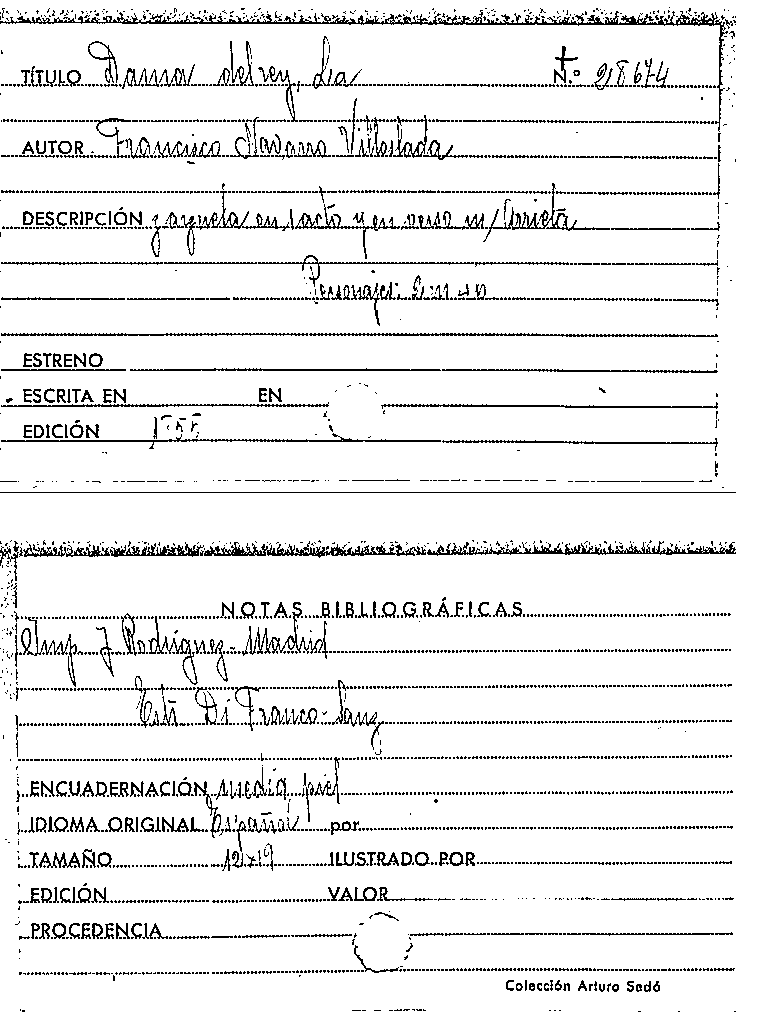 TÍTULO Dama del rey, La N.º 28674
AUTOR. Francisco Navarro Villoslada
DESCRIPCIÓN zarzuela en 1 acto y en verso m/ Arrieta
Personajes:
ESTRENO
ESCRITA EN EN
EDICIÓN
NOTAS BIBLIOGRÁFICAS
Imp. J Rodríguez - Madrid
Estr Di Franco - Sanz
ENCUADERNACIÓN media piel
IDIOMA ORIGINAL Español por
TAMAÑO 12x19 ILUSTRADO POR
EDICIÓN VALOR
PROCEDENCIA
Colección Arturo Sedó